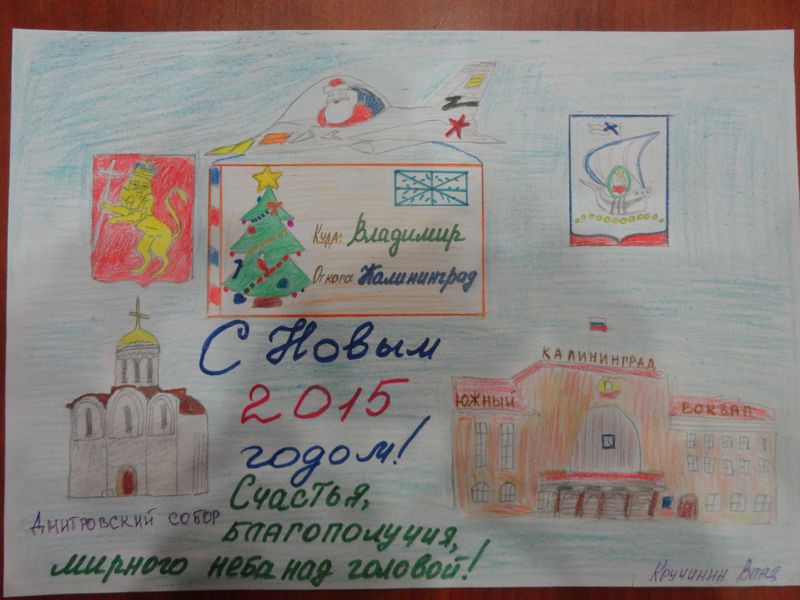 Куда: Владимир
От кого: Калининград
С Новым
2015
годом!
Счастья,
благополучия,
мирного неба над головой!
Дмитровский собор
КАЛИНИНГРАД
ЮЖНЫЙ ВОКЗАЛ
Кручинин Влад